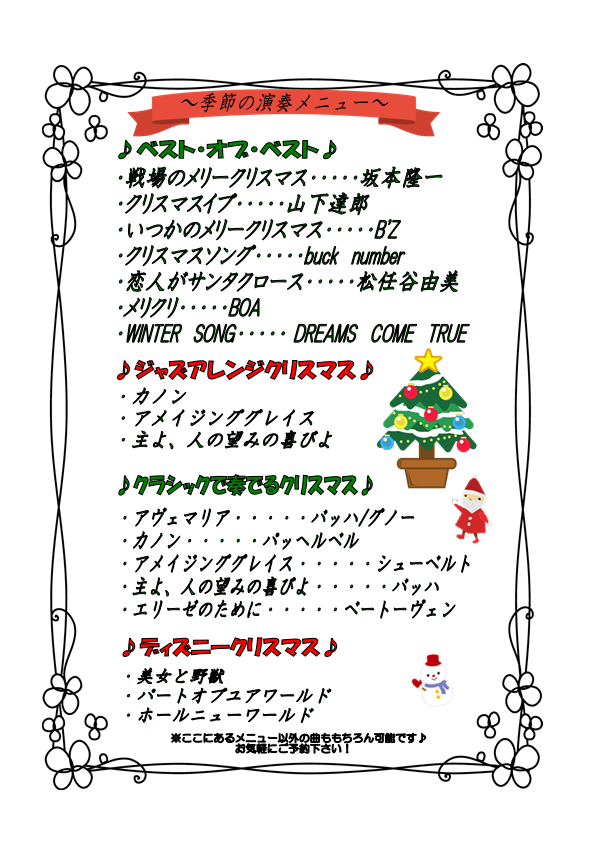 ～季節の演奏メニュー～
♪ベスト・オブ・ベスト♪
・戦場のメリークリスマス・・・・・坂本隆一
・クリスマスイブ・・・・・山下達郎
・いつかのメリークリスマス・・・・・B'Z
・クリスマスソング・・・・・buck number
・恋人がサンタクロース・・・・・松任谷由美
・メリクリ・・・・・BOA
・WINTER SONG・・・・・ DREAMS COME TRUE
♪ジャズアレンジクリスマス♪
・カノン
・アメイジンググレイス
・主よ、人の望みの喜びよ
♪クラシックで奏でるクリスマス♪
・アヴェマリア・・・・・バッハ/グノー
・カノン・・・・・パッヘルベル
・アメイジンググレイス・・・・・シューベルト
・主よ、人の望みの喜びよ・・・・・バッハ
・エリーゼのために・・・・・ベートーヴェン
♪ディズニークリスマス♪
・美女と野獣
・パートオブユアワールド
・ホールニューワールド
※ここにあるメニュー以外の曲ももちろん可能です♪
お気軽にご予約下さい！